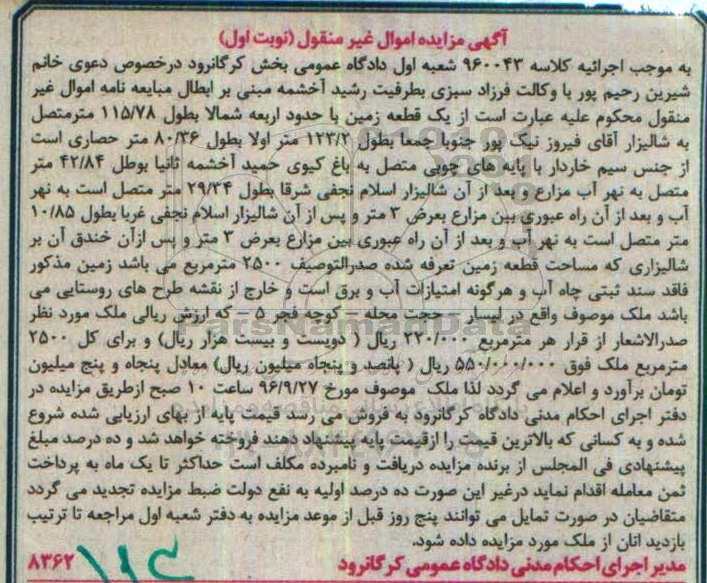 آگهی مزایده اموال غیر منقول (نوبت اول)
به موجب اجرائیه کلاسه ۹۶۰۰۴۳ شعبه اول دادگاه عمومی بخش کرگانرود درخصوص دعوی خانم
شیرین رحیم پور با وکالت فرزاد سبزی بطرفیت رشید آخشمه مبنی بر ابطال مبایعه نامه اموال غیر
منقول محکوم علیه عبارت است از یک قطعه زمین با حدود اربعه شمالا بطول ۱۱۵/۷۸ مترمتصل
به شالیزار آقای فیروز نیک پور جنوبا جمعا بطول ۱۲۳/۲ متر اولا بطول ۸۰/۳۶ متر حصاری است
از جنس سیم خاردار با پایه های چوبی متصل به باغ کیوی حمید آخشمه ثانیا بوطل ۴۲/۸۴ متر
متصل به نهر آب مزارع و بعد از آن شالیزار اسلام نجفی شرقا بطول ۲۹/۳۴ متر متصل است به نهر
آب و بعد از آن راه عبوری بین مزارع بعرض ۳ متر و پس از آن شالیزار اسلام نجفی غربا بطول ۱۰/۸۵
متر متصل است به نهر آب و بعد از آن راه عبوری بین مزارع بعرض ۳ متر و پس ازآن خندق آن بر
شالیزاری که مساحت قطعه زمین تعرفه شده صدرالتوصیف ۲۵۰۰ مترمربع می باشد زمین مذکور
فاقد سند ثبتی چاه آب و هرگونه امتیازات آب و برق است و خارج از نقشه طرح های روستایی می
باشد ملک موصوف واقع در لیسار – حجت محله – کوچه فجر ۵ – که ارزش ریالی ملک مورد نظر
صدرالاشعار از قرار هر مترمربع ۲۲۰/۰۰۰ ریال ( دویست و بیست هزار ریال) و برای کل ۲۵۰۰
مترمربع ملک فوق ۵۵۰/۰۰۰/۰۰۰ ریال ( پانصد و پنجاه میلیون ریال) معادل پنجاه و پنج میلیون
تومان برآورد و اعلام می گردد لذا ملک موصوف مورخ ۹۶/۹/۲۷ ساعت ۱۰ صبح ازطریق مزایده در
دفتر اجرای احکام مدنی دادگاه کرگانرود به فروش می رسد قیمت پایه از بهای ارزیابی شده شروع
شده و به کسانی که بالاترین قیمت را ازقیمت پایه پیشنهاد دهند فروخته خواهد شد و ده درصد مبلغ
پیشنهادی فی المجلس از برنده مزایده دریافت و نامبرده مکلف است حداکثر تا یک ماه به پرداخت
ثمن معامله اقدام نماید درغیر این صورت ده درصد اولیه به نفع دولت ضبط مزایده تجدید می گردد
متقاضیان در صورت تمایل می توانند پنج روز قبل از موعد مزایده به دفتر شعبه اول مراجعه تا ترتیب
بازدید آنان از ملک مورد مزایده داده شود.
مدیر اجرای احکام مدنی دادگاه عمومی کرگانرود ۸۳۶۲
ParsNamadData